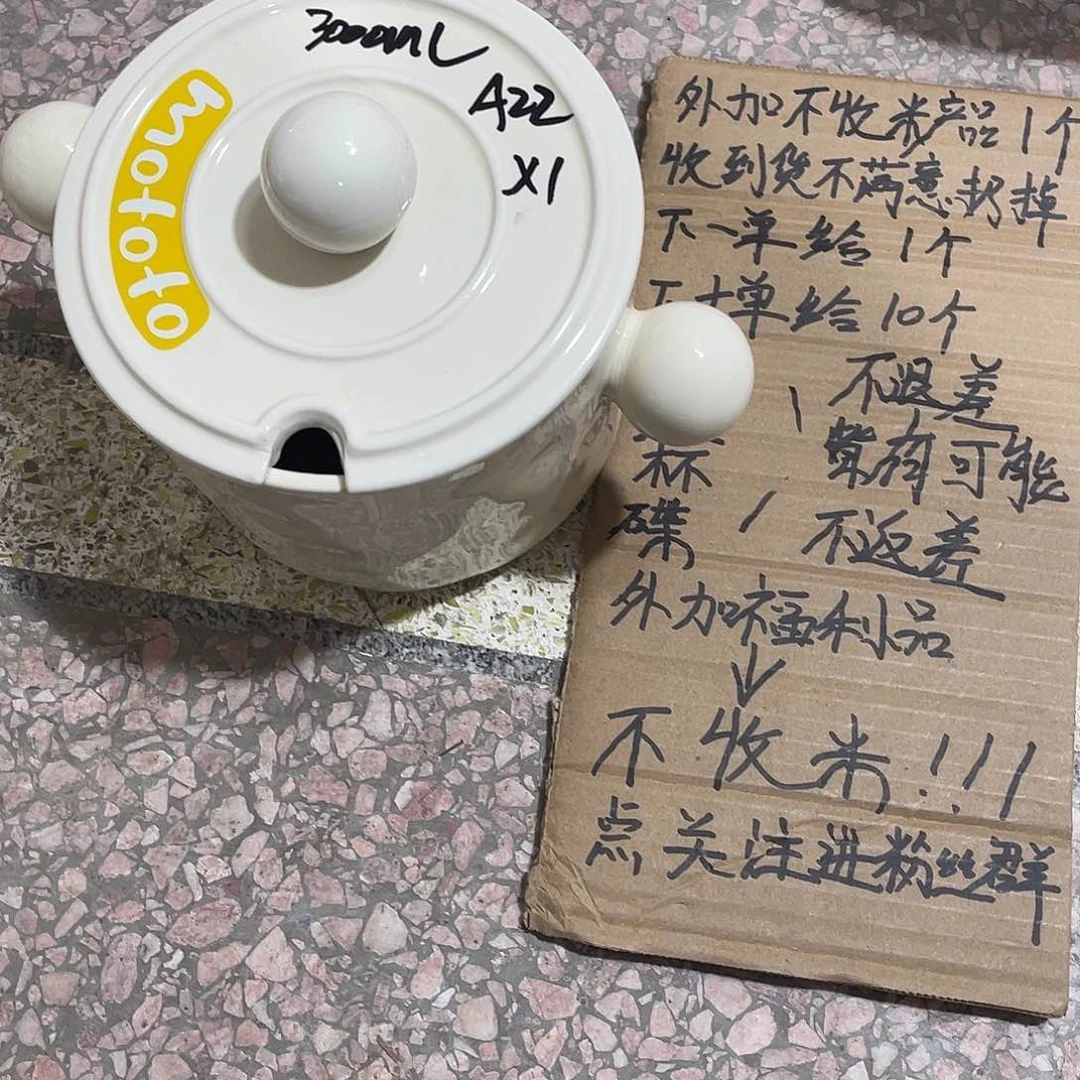 3000mL
A22
X1
mototo
外加不收米产品1个
收到货不满意扔掉
下一单给1个
下十单给10个
不退差
皆有可能
杯
碟
不返差
外加福利品
↓
不收米!!!
点关注进粉丝群